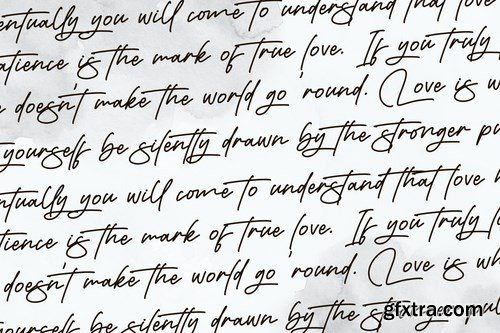 entually you will come to understand that love
atience is the mark of true love. If you truly
doesn't make the world go 'round. Love is w
yourself be silently drawn by the stronger pu
entually you will come to understand that love
tience is the mark of true love. If you truly lo
doesn't make the world go 'round. Love is wh
yourself be silently drawn by the stronger pul
gfxtra.com